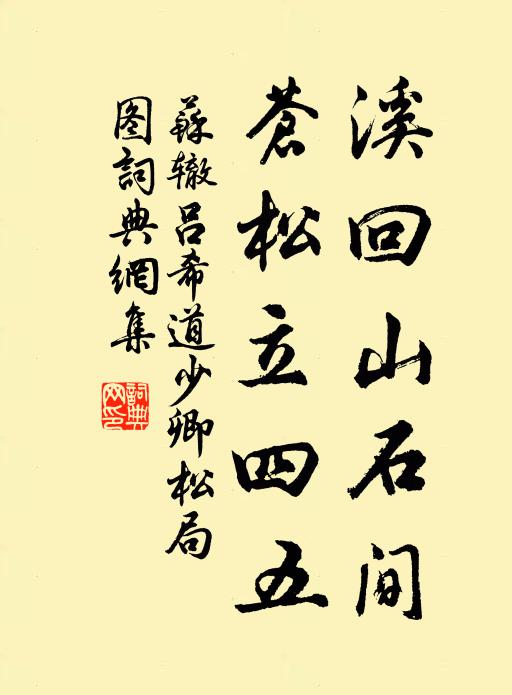 溪回山石间
蒼松立四五
蘇辙吕希道少卿松局
图詞典網集
詞典
网印